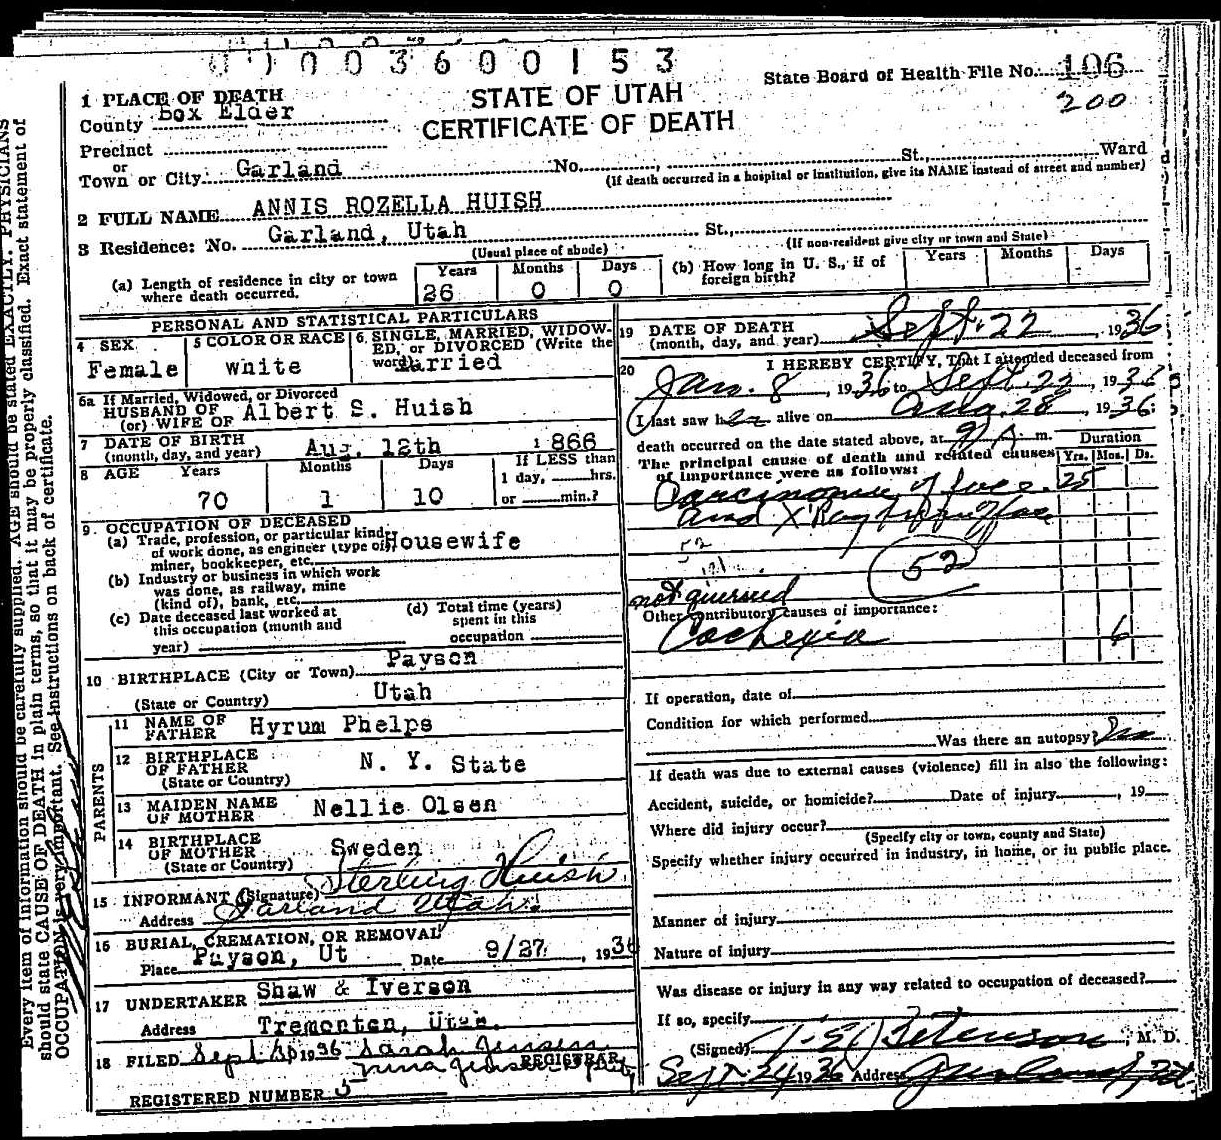 0 0 0 3 6 0 0 1 5 3
State Board of Health File No. 106
200
STATE OF UTAH
CERTIFICATE OF DEATH
1 PLACE OF DEATH
County Box Elder
Precinct
or
Town or City. Garland No. St., Ward
(If death occurred in a hospital or institution, give its NAME instead of street and number)
2 FULL NAME ANNIS ROZELLA HUISH
3 Residence: No. Garland, Utah St.,
(Usual place of abode) (If non-resident give city or town and State)
(a) Length of residence in city or town where death occurred. Years 26 Months 0 Days 0
(b) How long in U. S., if of foreign birth? Years Months Days
PERSONAL AND STATISTICAL PARTICULARS
4 SEX Female
5 COLOR OR RACE White
6. SINGLE, MARRIED, WIDOWED, or DIVORCED (Write the word) Married
6a If Married, Widowed, or Divorced
HUSBAND OF
(or) WIFE OF Albert S. Huish
7 DATE OF BIRTH
(month, day, and year) Aug. 12th 1866
8 AGE Years 70 Months 1 Days 10 If LESS than 1 day, hrs. or min.?
9. OCCUPATION OF DECEASED
(a) Trade, profession, or particular kind of work done, as engineer (type of) miner, bookkeeper, etc. Housewife
(b) Industry or business in which work was done, as railway, mine (kind of), bank, etc.
(c) Date deceased last worked at this occupation (month and year)
(d) Total time (years) spent in this occupation
10 BIRTHPLACE (City or Town) Payson
(State or Country) Utah
PARENTS
11 NAME OF FATHER Hyrum Phelps
12 BIRTHPLACE OF FATHER (State or Country) N. Y. State
13 MAIDEN NAME OF MOTHER Nellie Olsen
14 BIRTHPLACE OF MOTHER (State or Country) Sweden
15 INFORMANT (Signature) Sterling Huish
Address Garland Utah.
16 BURIAL, CREMATION, OR REMOVAL
Place Payson, Ut Date 9/27, 1936
17 UNDERTAKER Shaw & Iverson
Address Tremonton, Utah.
18 FILED Sept 30 1936 Sarah Jensen
REGISTRAR
REGISTERED NUMBER 5
19 DATE OF DEATH
(month, day, and year) Sept. 22 1936
20 I HEREBY CERTIFY, That I attended deceased from
Jan. 8, 1936 to Sept. 22, 1936
I last saw her alive on Aug. 28, 1936;
death occurred on the date stated above, at 9 A m.
The principal cause of death and related causes of importance were as follows:
Duration
Yrs. Mos. Ds.
Carcinoma of face 25
and X Ray
52
52
Other contributory causes of importance:
Cachexia 6
If operation, date of
Condition for which performed
Was there an autopsy?
If death was due to external causes (violence) fill in also the following:
Accident, suicide, or homicide? Date of injury, 19
Where did injury occur?
(Specify city or town, county and State)
Specify whether injury occurred in industry, in home, or in public place.
Manner of injury
Nature of injury
Was disease or injury in any way related to occupation of deceased?
If so, specify
(Signed) M. D.
Sept. 24 1936 Address Garland, Ut
Every item of information should be carefully supplied. AGE should be stated EXACTLY. PHYSICIANS
should state CAUSE OF DEATH in plain terms, so that it may be properly classified. Exact statement of
OCCUPATION is very important. See instructions on back of certificate.